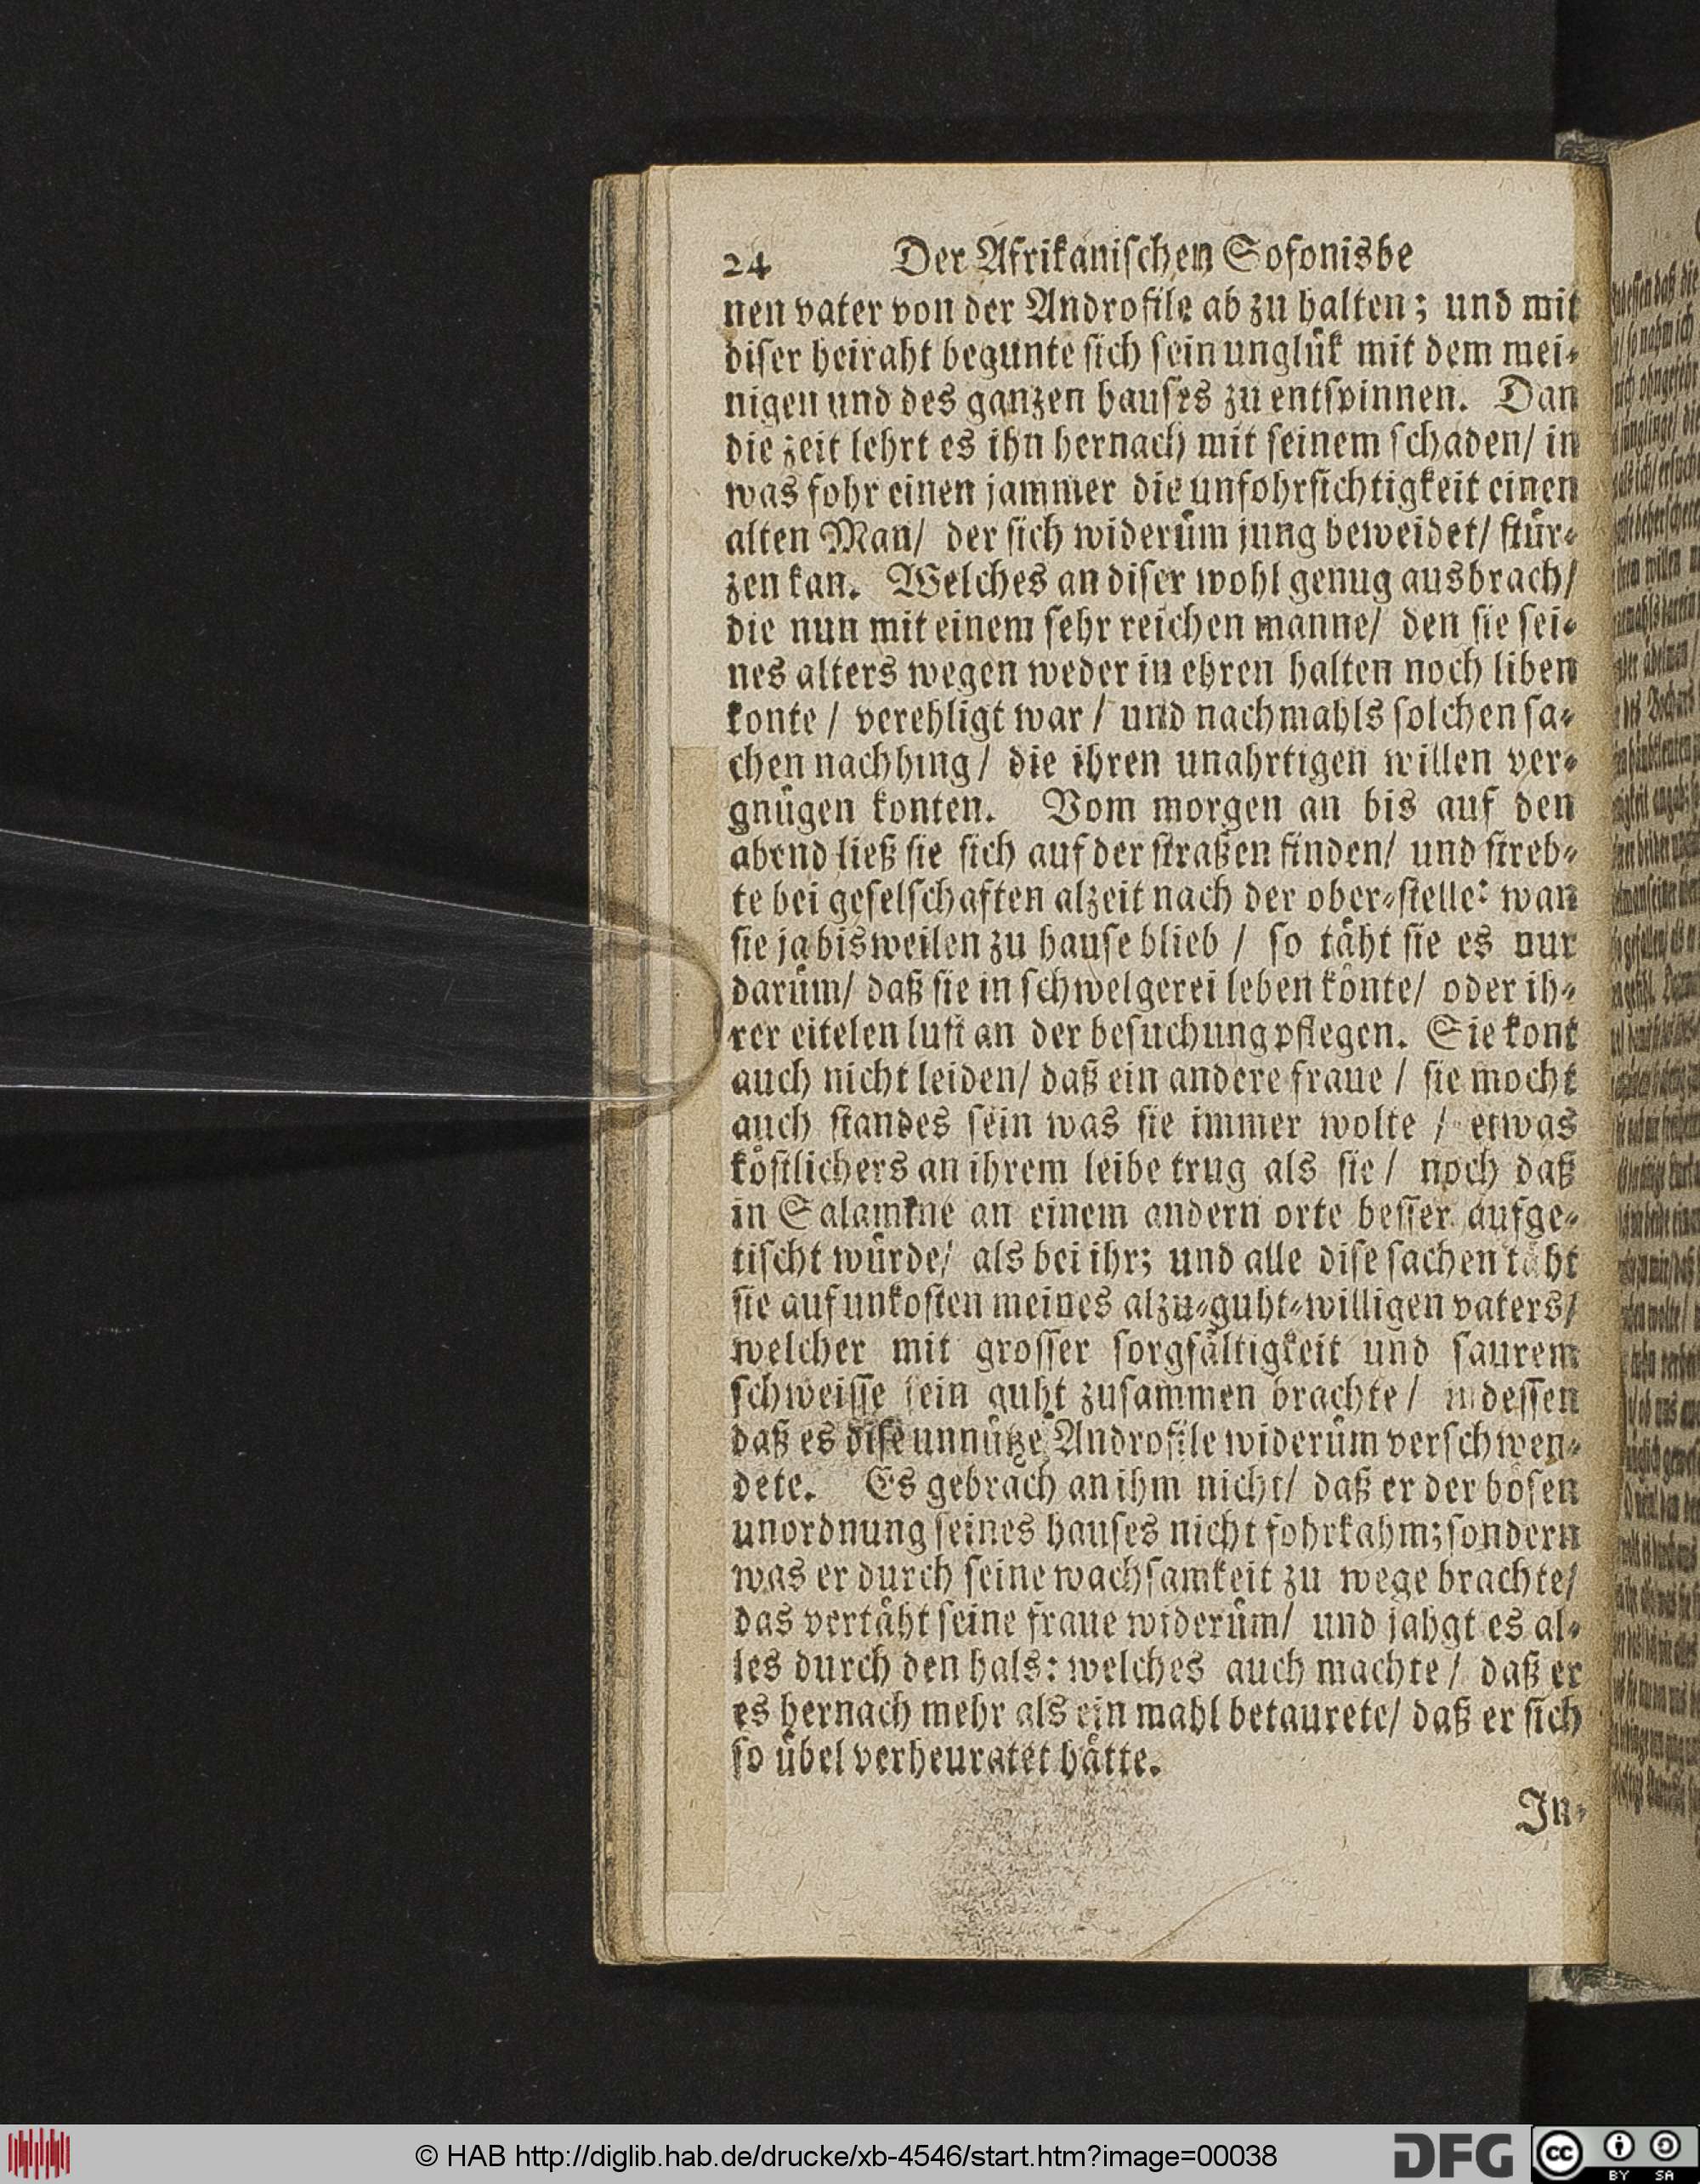 24 Der Afrikanischen Sofonisbe
nen vater von der Androfile ab zu halten; und mit
diser heiraht begunte sich sein unglük mit dem mei-
nigen und des ganzen hauses zu entspinnen. Dan
die zeit lehrt es ihn hernach mit seinem schaden/ in
was fohr einen jammer die unfohrsichtigkeit einen
alten Man/ der sich widerüm jung beweibet/ stür-
zen kan. Welches an diser wohl genug ausbrach/
die nun mit einem sehr reichen manne/ den sie sei-
nes alters wegen weder in ehren halten noch liben
konte / verehligt war / und nachmahls solchen sa-
chen nachhing/ die ihren unahrtigen willen ver-
gnügen konten. Vom morgen an bis auf den
abend ließ sie sich auf der straßen finden/ und streb-
te bei geselschaften alzeit nach der ober-stelle: wan
sie ja bisweilen zu hause blieb / so täht sie es nur
darüm/ daß sie in schwelgerei leben könte/ oder ih-
rer eitelen lust an der besuchung pflegen. Sie kont
auch nicht leiden/ daß ein andere fraue / sie mocht
auch standes sein was sie immer wolte / etwas
köstlichers an ihrem leibe trug als sie / noch daß
in Salamine an einem andern orte besser aufge-
tischt würde/ als bei ihr; und alle dise sachen täht
sie auf unkosten meines alzu-guht-willigen vaters/
welcher mit grosser sorgfältigkeit und saurem
schweisse sein guht zusammen brachte / indessen
daß es dise unnütze Androfile widerüm verschwen-
dete. Es gebrach an ihm nicht/ daß er der bösen
unordnung seines hauses nicht fohrkahm; sondern
was er durch seine wachsamkeit zu wege brachte/
das vertäht seine fraue widerüm/ und jahgt es al-
les durch den hals: welches auch machte / daß er
es hernach mehr als ein mahl betaurete/ daß er sich
so übel verheuratet hätte.
In-
© HAB http://diglib.hab.de/drucke/xb-4546/start.htm?image=00038
DFG
cc BY SA